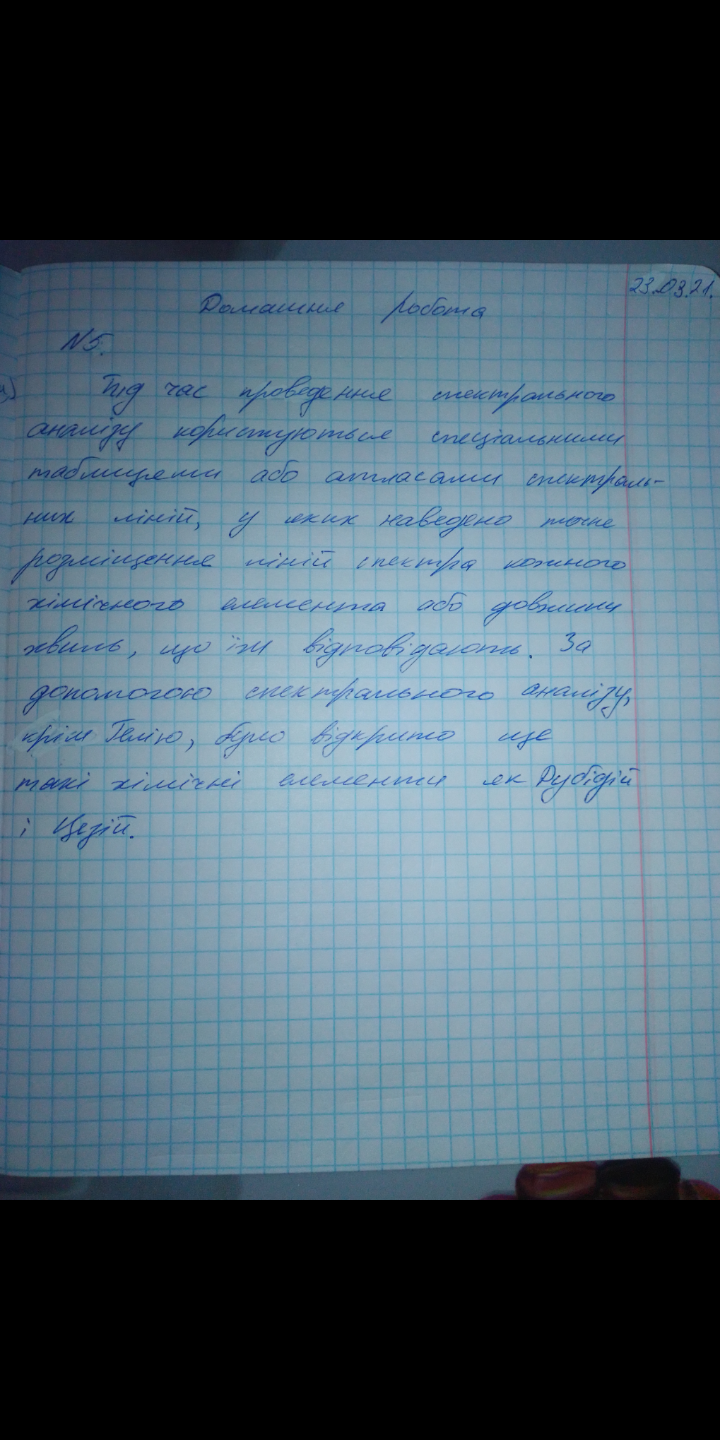 23.03.21.
Домашня робота
N5.
Під час проведення спектрального
аналізу користуються спеціальними
таблицями або атласами спектраль-
них ліній, у яких наведено точне
розміщення ліній спектра кожного
хімічного елемента або довжини
хвиль, що їм відповідають. За
допомогою спектрального аналізу,
крім Гелію, було відкрито ще
такі хімічні елементи як Рубідій
і Цезій.